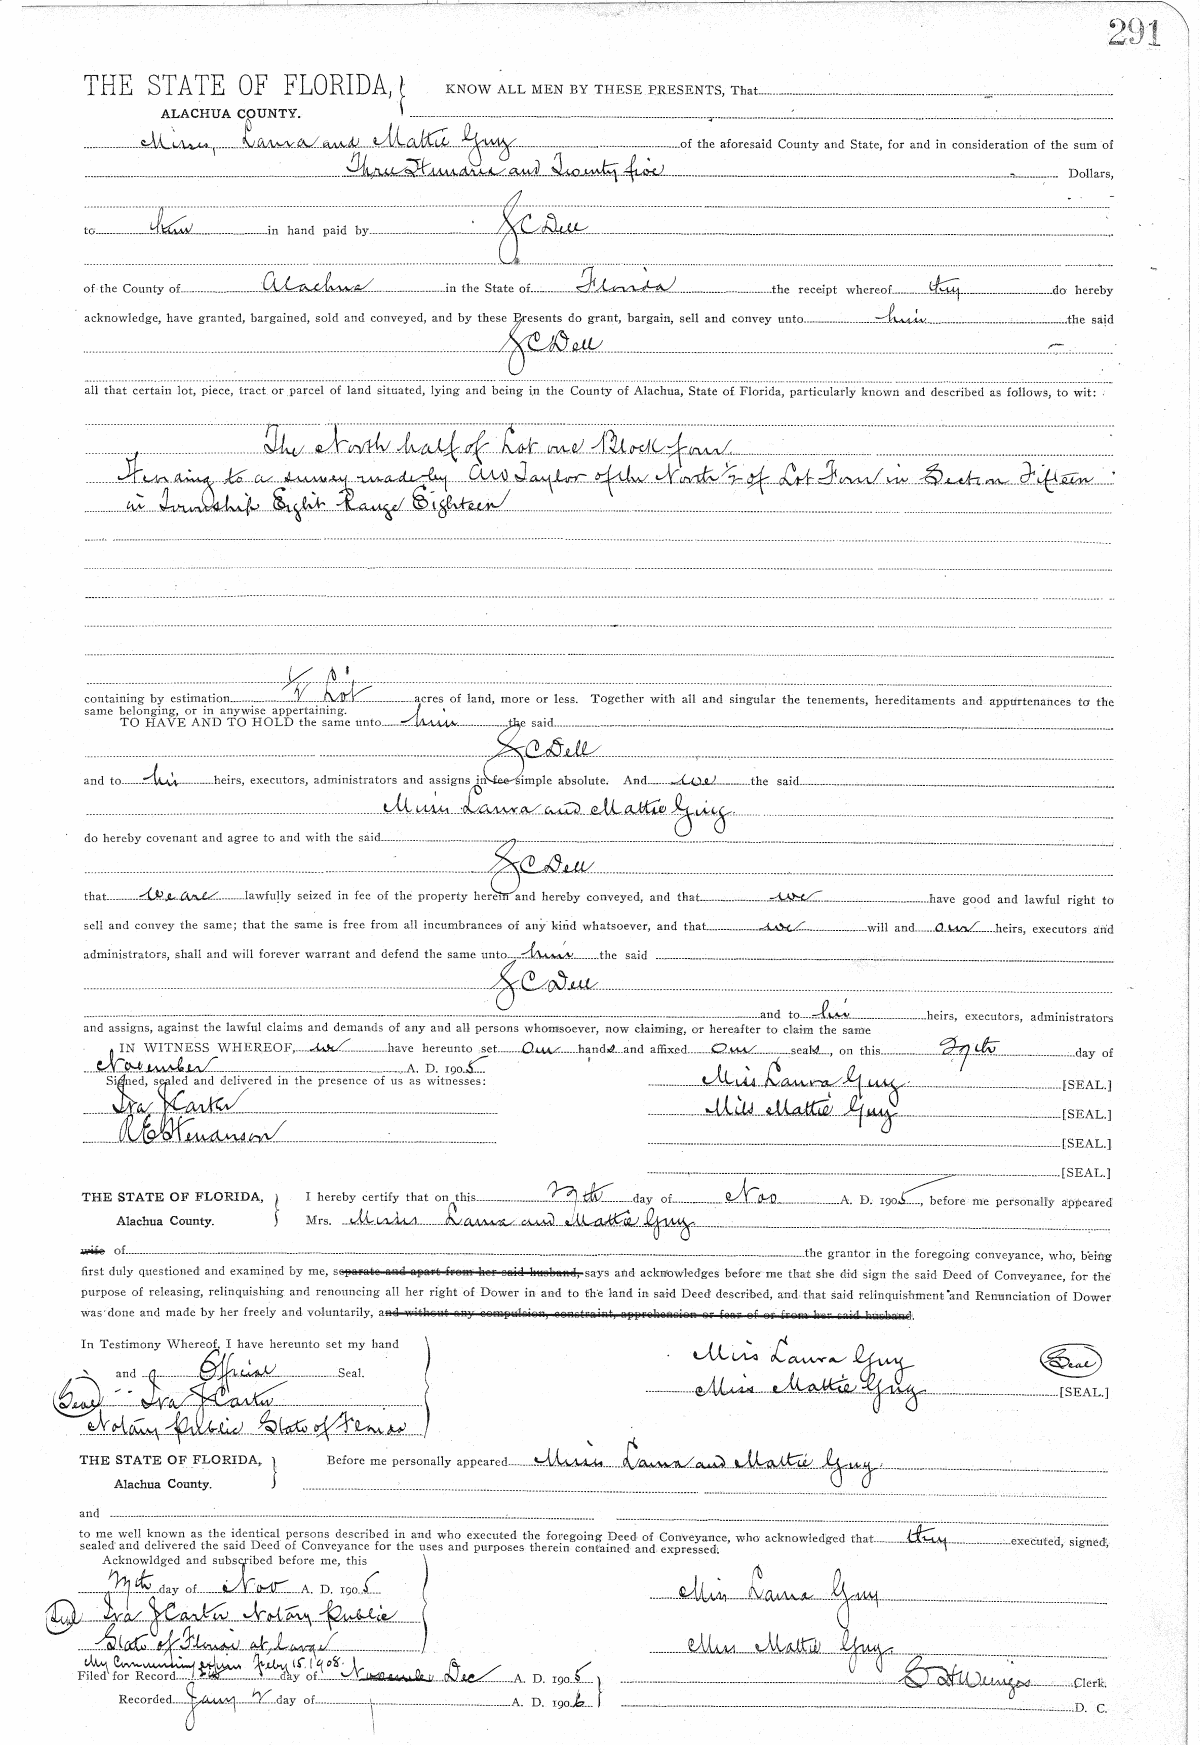 291
THE STATE OF FLORIDA, KNOW ALL MEN BY THESE PRESENTS, That
ALACHUA COUNTY.
Misses, Laura and Mattie Guy of the aforesaid County and State, for and in consideration of the sum of
Three Hundred and Twenty five Dollars,
to in hand paid by J C Dell
of the County of Alachua in the State of Florida the receipt whereof they do hereby
acknowledge, have granted, bargained, sold and conveyed, and by these Presents do grant, bargain, sell and convey unto him the said
J C Dell
all that certain lot, piece, tract or parcel of land situated, lying and being in the County of Alachua, State of Florida, particularly known and described as follows, to wit:
The North half of Lot one Block four
to a survey made by A W Taylor of the North 1/2 of Lot Four in Section Fifteen
in Township Eight Range Eighteen
containing by estimation 1/2 Lot acres of land, more or less. Together with all and singular the tenements, hereditaments and appurtenances to the
same belonging, or in anywise appertaining.
TO HAVE AND TO HOLD the same unto him the said
J C Dell
and to his heirs, executors, administrators and assigns in fee simple absolute. And we the said
Misses Laura and Mattie Guy
do hereby covenant and agree to and with the said
J C Dell
that we are lawfully seized in fee of the property herein and hereby conveyed, and that we have good and lawful right to
sell and convey the same; that the same is free from all incumbrances of any kind whatsoever, and that we will and our heirs, executors and
administrators, shall and will forever warrant and defend the same unto him the said
J C Dell
and to his heirs, executors, administrators
and assigns, against the lawful claims and demands of any and all persons whomsoever, now claiming, or hereafter to claim the same
IN WITNESS WHEREOF, we have hereunto set our hands and affixed our seals, on this 29th day of
November A. D. 1905
Signed, sealed and delivered in the presence of us as witnesses: Miss Laura Guy [SEAL.]
Ira J Carter Miss Mattie Guy [SEAL.]
R E Henderson [SEAL.]
[SEAL.]
THE STATE OF FLORIDA, I hereby certify that on this 29th day of Nov A. D. 1905, before me personally appeared
Alachua County. Mrs. Misses Laura and Mattie Guy
wife of the grantor in the foregoing conveyance, who, being
first duly questioned and examined by me, separate and apart from her said husband, says and acknowledges before me that she did sign the said Deed of Conveyance, for the
purpose of releasing, relinquishing and renouncing all her right of Dower in and to the land in said Deed described, and that said relinquishment and Renunciation of Dower
was done and made by her freely and voluntarily, and without any compulsion, constraint, apprehension or fear of or from her said husband.
In Testimony Whereof, I have hereunto set my hand Miss Laura Guy Seal
and Official Seal. Miss Mattie Guy [SEAL.]
Seal Ira J Carter
Notary Public State of Florida
THE STATE OF FLORIDA, Before me personally appeared Misses Laura and Mattie Guy
Alachua County.
and
to me well known as the identical persons described in and who executed the foregoing Deed of Conveyance, who acknowledged that they executed, signed,
sealed and delivered the said Deed of Conveyance for the uses and purposes therein contained and expressed.
Acknowldged and subscribed before me, this
29th day of Nov A. D. 1905 Miss Laura Guy
Seal Ira J Carter Notary Public
State of Florida at Large Miss Mattie Guy
My Commission expires Feby 15. 1908.
Filed for Record day of November Dec A. D. 1905 Clerk.
Recorded Jany 2 day of A. D. 1906 D. C.